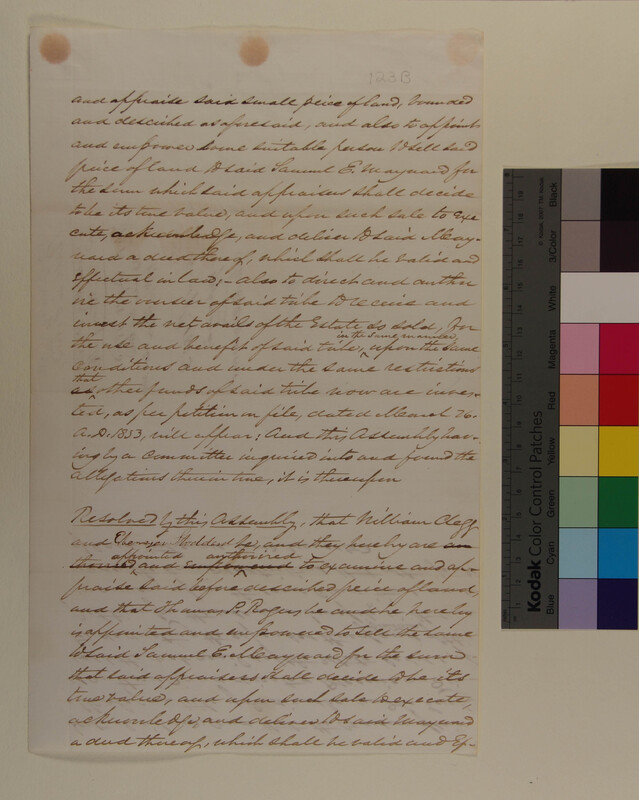 123B
and appraise said small peice of land, bounded
and described as aforesaid, and also to appoint
and empower some suitable person to sell said
peice of land to said Samuel E. Maynard for
the sum which said appraisers shall decide
to be its true value, and upon such sale to exe
cute, acknowledge, and deliver to said May-
nard a deed thereof, which shall be valid and
effectual in law; - also to direct and autho
rize the overseer of said tribe to receive and
invest the net avails of the Estate so sold, for
the use and benefit of said tribe, in the same manner, upon the same
conditions and under the same restrictions
that as other funds of said tribe now are inves-
ted, as per petition on file, dated March 26.
A.D. 1853, will appear; And this Assembly hav-
ing by a committee inquired into and found the
allegations therein true, it is thereupon
Resolved by this Assembly, that William Clegg
and Ebenezer Stoddard be, and they hereby are
appointed and authorized empowered to examine and ap-
praise said before described peice of land,
and that Thomas P. Rogers be and he hereby
is appointed and empowered to sell the same
to said Samuel E. Maynard for the sum
that said appraisers shall decide to be its
true value, and upon such sale to execute,
acknowledge, and deliver to said Maynard
a deed thereof, which shall be valid and Ef-
Kodak Color Control Patches
© Kodak, 2007 TM: Kodak
Blue Cyan Green Yellow Red Magenta White 3/Color Black